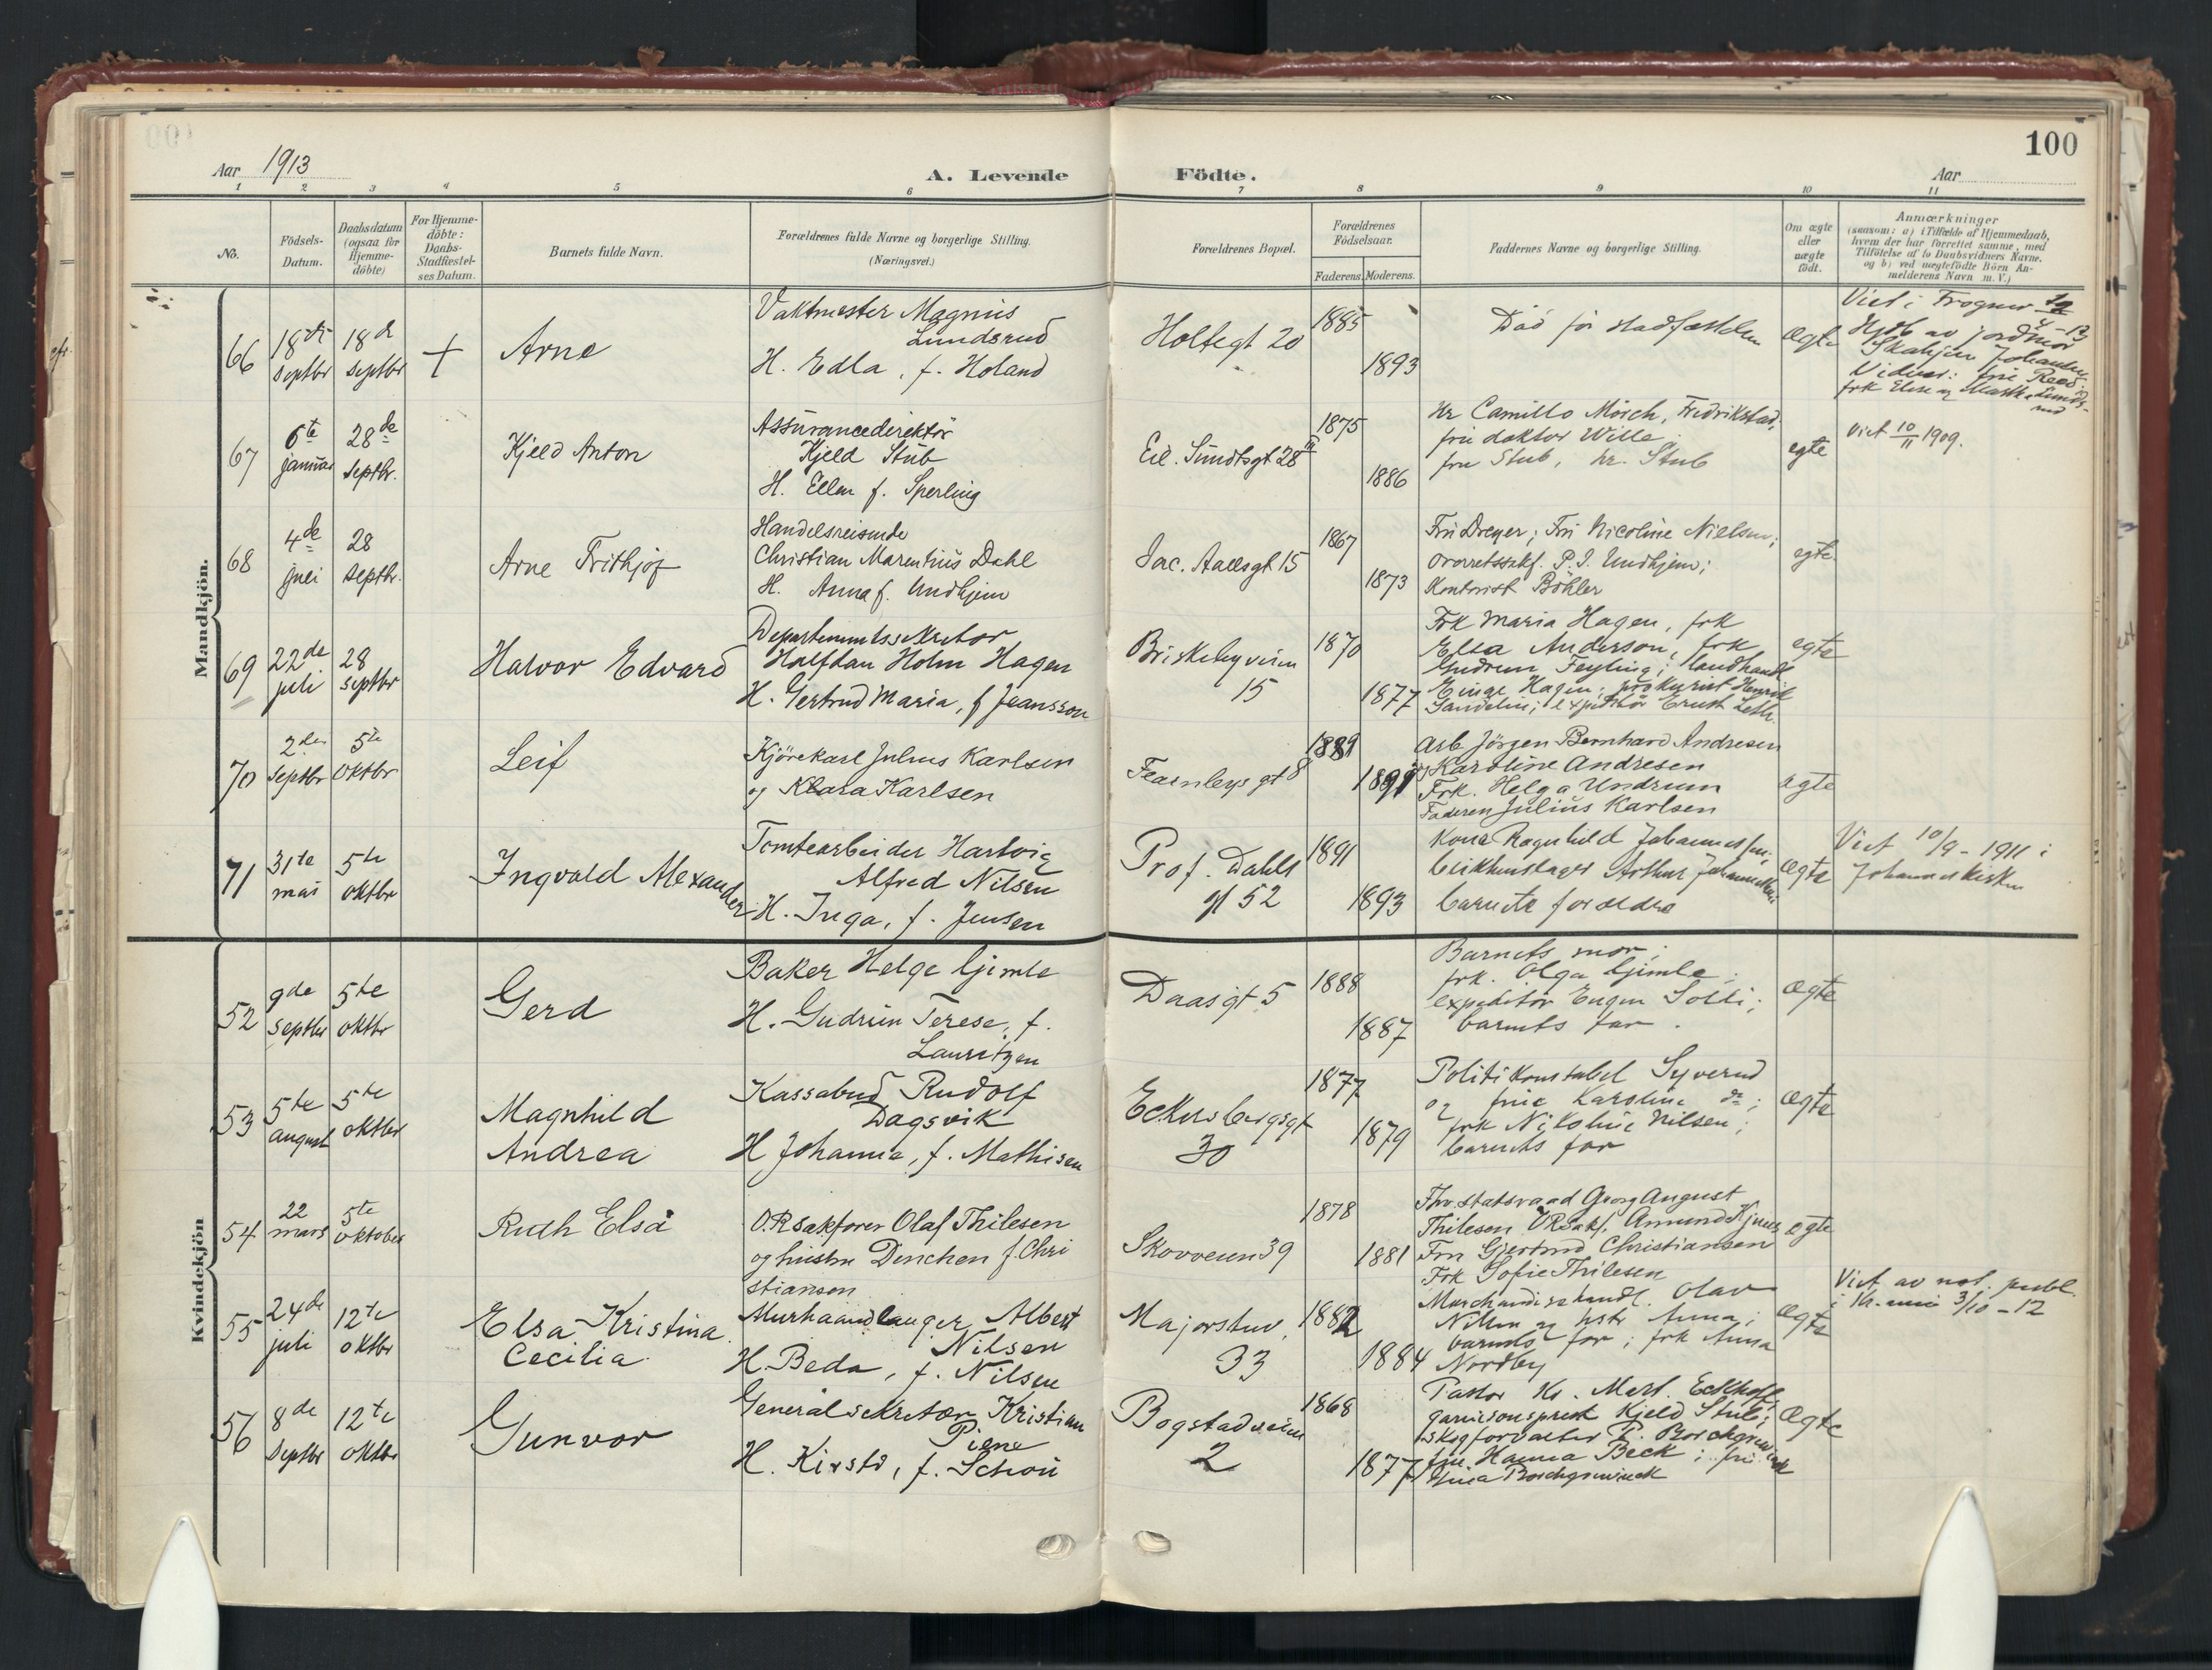 100
Aar 1913
A. Levende Födte.
Aar
1 2 3 4 5 6 7 8 9 10 11
No.
Födsels-Datum.
Daabsdatum (ogsaa for Hjemme-döbte)
For Hjemme-döbte: Daabs-Stadfæstel-ses Datum.
Barnets fulde Navn.
Forældrenes fulde Navne og borgerlige Stilling. (Næringsvei.)
Forældrenes Bopæl.
Forældrenes Födselsaar.
Faderens. Moderens.
Faddernes Navne og borgerlige Stilling.
Om ægte eller uægte født.
Anmærkninger
(saasom: a) i Tilfælde af Hjemmedaab, hvem der har forrettet samme, med Tilföielse af to Daabsvidners Navne, og b) ved uægtefödte Börn An-melderens Navn m. V.)
Mandkjön.
66
18de septbr
18de septbr
+
Arne
Vaktmester Magnus
Lundsrud
H. Edla, f. Holand
Holtegt 20
1885
1893
Död før stadfæstelsen
Ægte
Viet i Frogner
Hjdb av jordmor
Vidner: frue
67
6te januar
28de septbr.
Kjeld Anton
Assurancedirektör
Kjeld Stub
H. Ellen f. Sperling
Eil. Sundtsgt 28 III
1875
1886
Hr Camillo Mörch, Fredrikstad,
fru doktor Wille
fru Stub, hr. Stub
egte
Viet 10/11 1909.
68
4de juli
28 septbr.
Arne Frithjof
Handelsreisende
Christian Marentius Dahl
H. Anna f. Undhjem
Jac. Aallsgt 15
1867
1873
Fru Dreyer; Fru Nicoline Nielsen;
Overretssakf. P. J. Undhjem;
Kontorist Böhler
egte
69
22de juli
28 septbr
Halvor Edvard
Departementssekretær
Halfdan Holm Hagen
H. Gertrud Maria, f Jeansson
Briskebyveien
15
1870
1877
Frk Maria Hagen, frk
Elsa Anderson, frk
Gudrun Feyling; landhandl
Hagen; prokurist Henrik
Sandelin; expeditör Ernst
egte
70
2den septbr
5te oktbr
Leif
Kjörekarl Julius Karlsen
og Klara Karlsen
Fearnleys gt 8
1889
1891
Arb Jörgen Bernhard Andresen
og Karoline Andresen
Frk. Helga Undrum
Faderen Julius Karlsen
ægte
71
31te mai
5te oktbr
Ingvald Alexander
Tomtearbeider Hartvig
Alfred Nilsen
H. Inga, f. Jensen
Prof. Dahls
gt 52
1891
1893
Kona Ragnhild Johannessen;
Arthur Johannessen
barnets forældre
Ægte
Viet 10/9 - 1911 i
Johanneskirken
Kvindekjön
52
9de septbr
5te oktbr
Gerd
Baker Helge Gjemle
H. Gudrun Terese, f.
Lauritzen
Daasgt 5
1888
1887
Barnets mor;
frk. Olga Gjemle;
expeditör Eugen Solli;
barnets far.
Ægte
53
5te august
5te oktbr
Magnhild
Andrea
Kassabud Rudolf
Dagsvik
H Johanna, f. Mathisen
Eckersbergsgt
30
1877
1879
Politikonstabel Syverud
og frue Karoline do;
frk Nikoline Nilsen;
barnets far
Ægte
54
22 mars
5te oktober
Ruth Elsa
O.R sakförer Olaf Thilesen
og hustru Denchen f. Chri
stiansen
Skovveien 39
1878
1881
Fhv. statsraad Georg August
Thilesen, ORsakf. Amund
Fru Gjertrud Christiansen
Frk Sofie Thilesen
ægte
55
24de juli
12te oktbr
Elsa Kristina
Cecilia
Murhaandlanger Albert
Nilsen
H. Beda, f. Nilsen
Majorstuv.
33
1882
1884
Marchandisehandl. Olav
Nilsen og hstr Anna;
barnets far; frk Anna
Nordby
Ægte
Viet av not. publ.
i Kr.ania 3/10 - 12
56
8de septbr
12te oktbr
Gunvor
Generalsekretær Kristian
Piene
H. Kirsti, f. Schou
Bogstadveien
2
1868
1877
Pastor Kr. Mart. Eckhoff,
garnisonsprest Kjeld Stub;
skogforvalter P. Borchgrevinck
frue Hanna Beck; fru
Borchgrevinck
Ægte